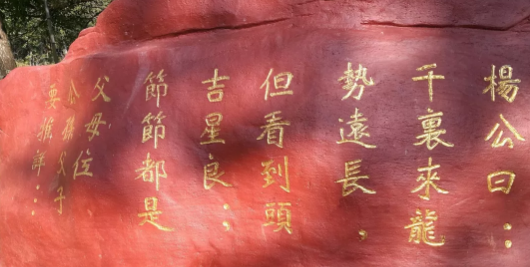 楊公曰：
千裏來龍
勢遠長，
但看到頭
吉星良；
節節都是
父母位
要推詳：：